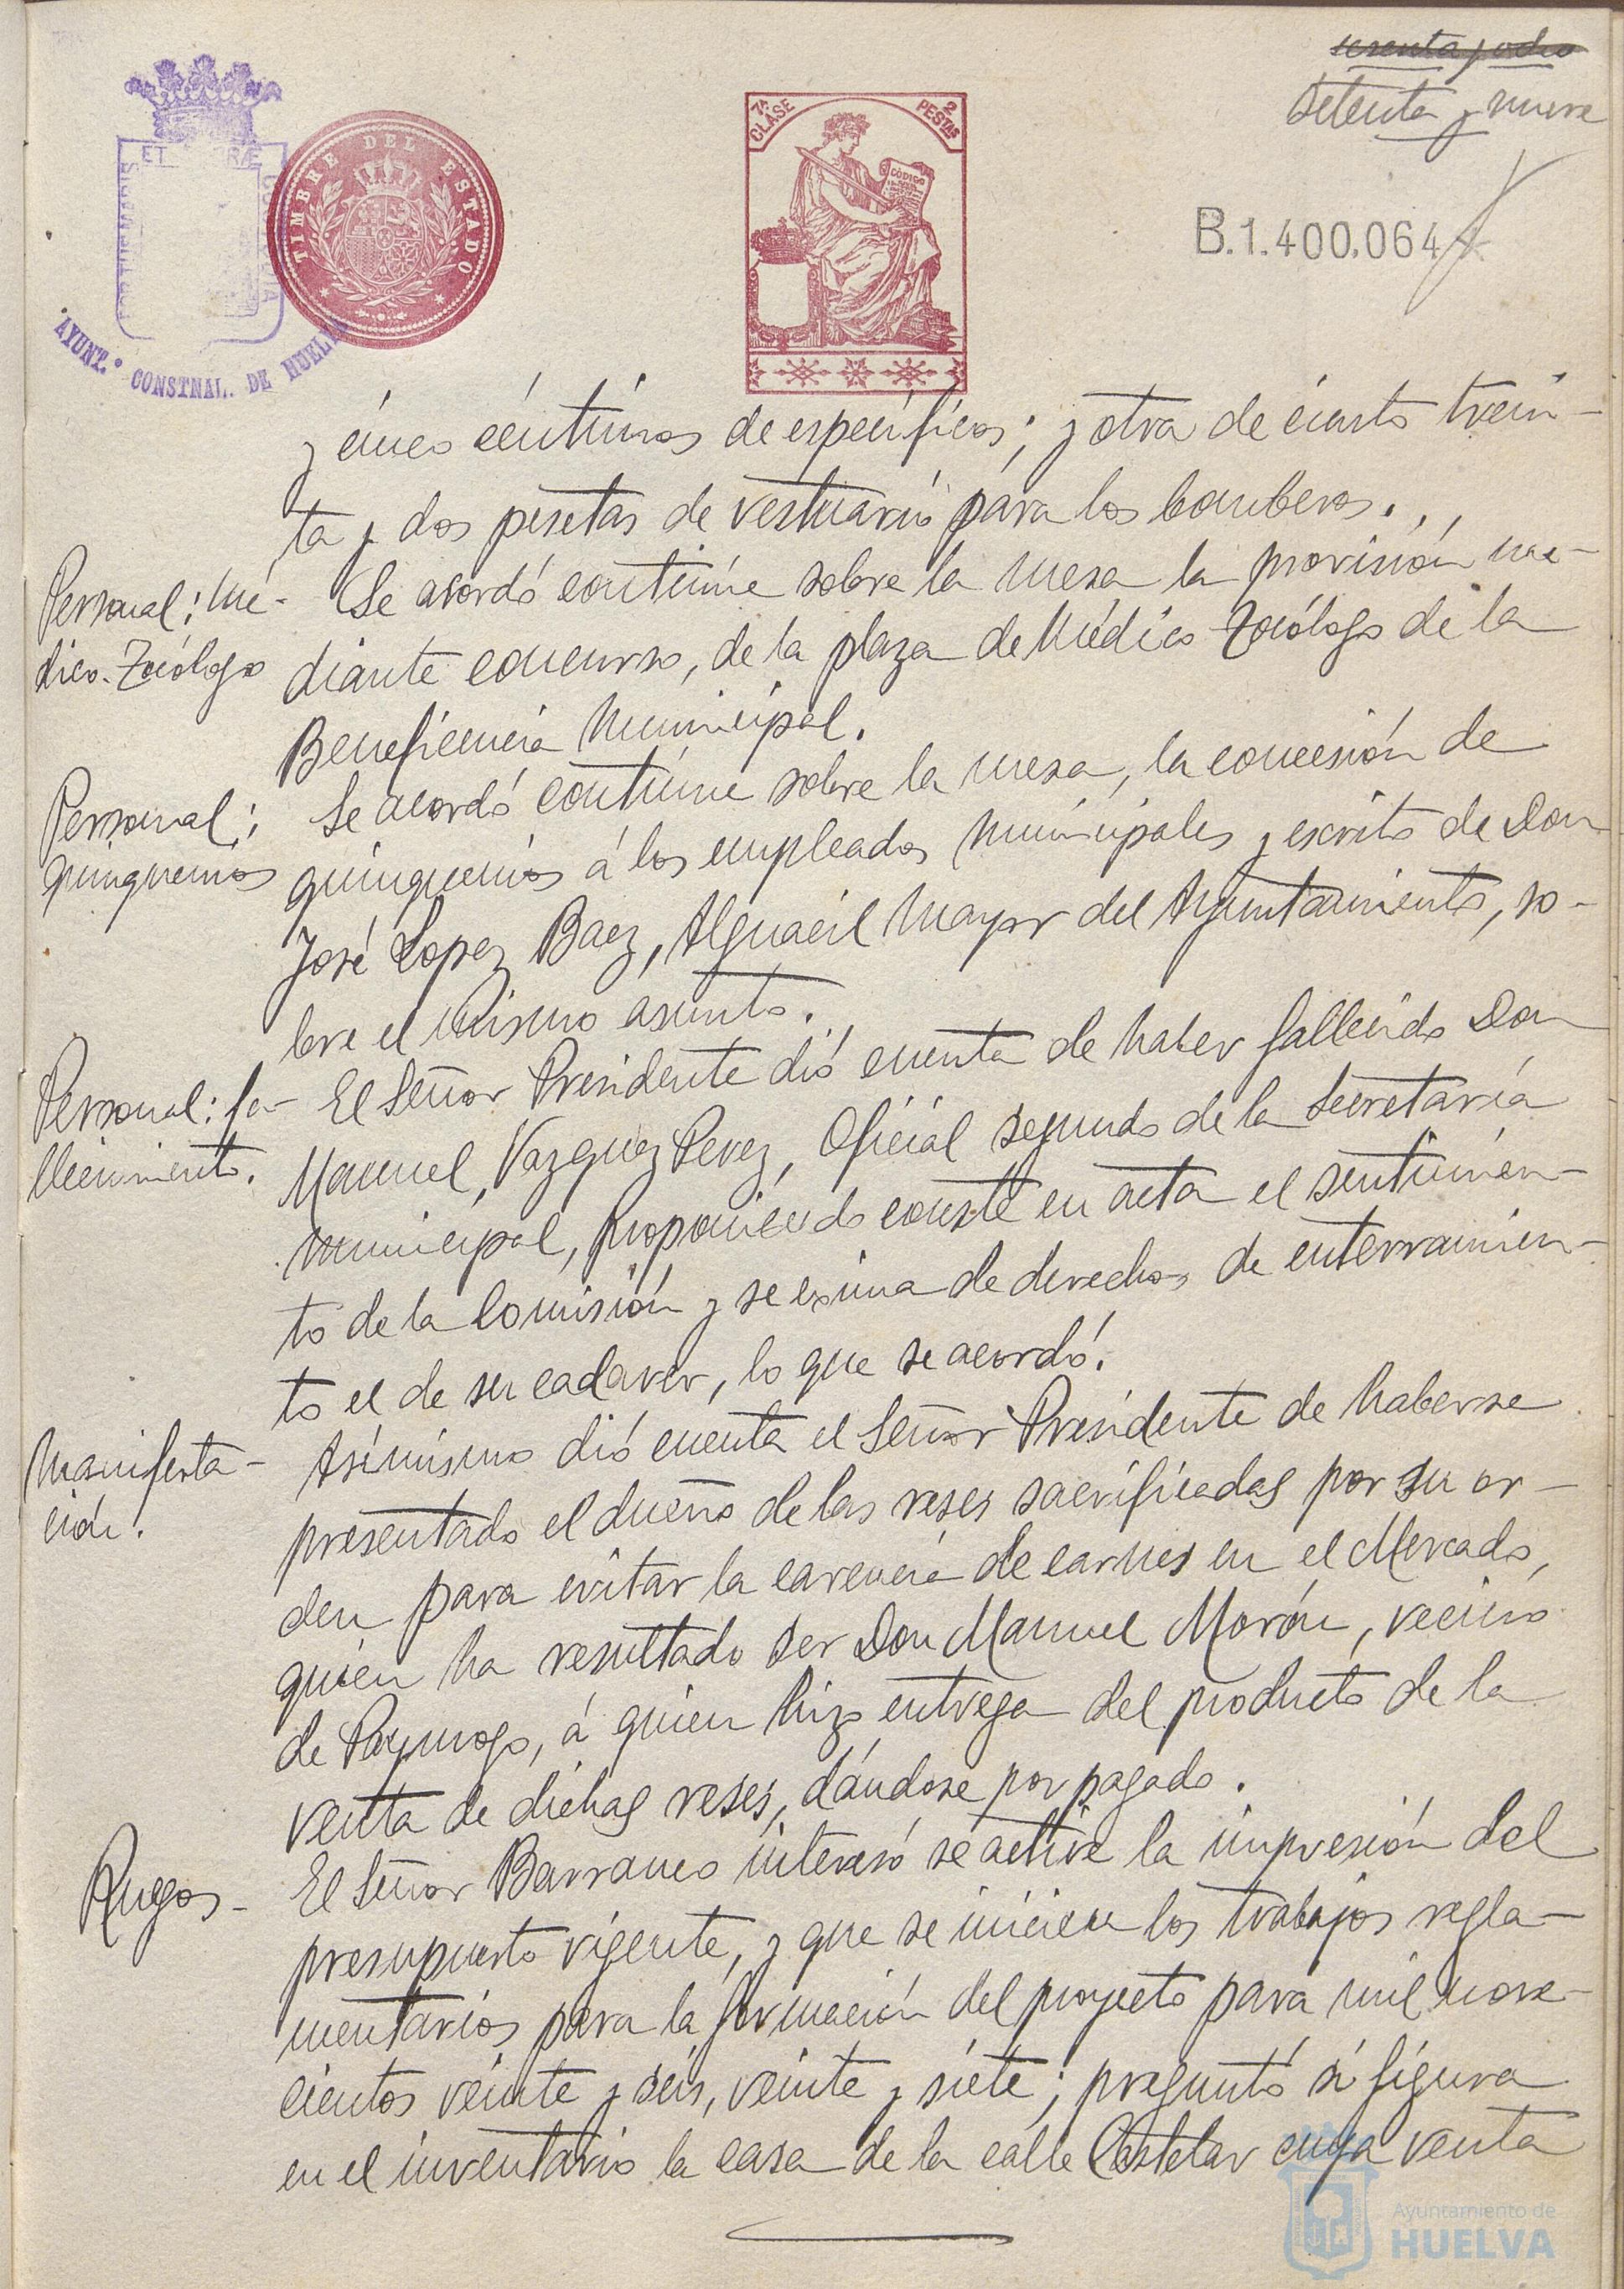 sesenta y ocho
Setenta y nueve
ET TERRÆ
AYUNT.º CONSTNAL. DE HUELVA
TIMBRE DEL ESTADO
7ª CLASE
2 PESTAS
CODIGO
B.1.400.064
y cinco céntimos de específicos; y otra de ciento trein-
ta y dos pesetas de vestuario para los bomberos.
Personal: Mé-
dico-Tocólogo
Se acordó continúe sobre la mesa la provisión me-
diante concurso, de la plaza de Médico Tocólogo de la
Beneficencia Municipal.
Personal;
quinquenios
Se acordó continúe sobre la mesa, la concesión de
quinquenios á los empleados municipales y escrito de Don
José Lopez Baez, Alguacil Mayor del Ayuntamiento, so-
bre el mismo asunto.
Personal: fa-
llecimiento.
El Señor Presidente dió cuenta de haber fallecido Don
Manuel Vazquez Perez, Oficial segundo de la Secretaría
municipal, proponiendo conste en acta el sentimien-
to de la Comisión y se exima de derechos de enterramien-
to el de su cadaver, lo que se acordó.
Manifesta-
ción.
Asimismo dió cuenta el Señor Presidente de haberse
presentado el dueño de las reses sacrificadas por su or-
den para evitar la carencia de carnes en el Mercado,
quien ha resultado ser Don Manuel Morón, vecino
de Paymogo, á quien hizo entrega del producto de la
venta de dichas reses, dándose por pagado.
Ruegos-
El Señor Barranco interesó se active la impresión del
presupuesto vigente, y que se inicien los trabajos regla-
mentarios para la formación del proyecto para mil nove-
cientos veinte y seis, veinte y siete; preguntó si figura
en el inventario la casa de la calle Castelar cuya venta
Ayuntamiento de
HUELVA